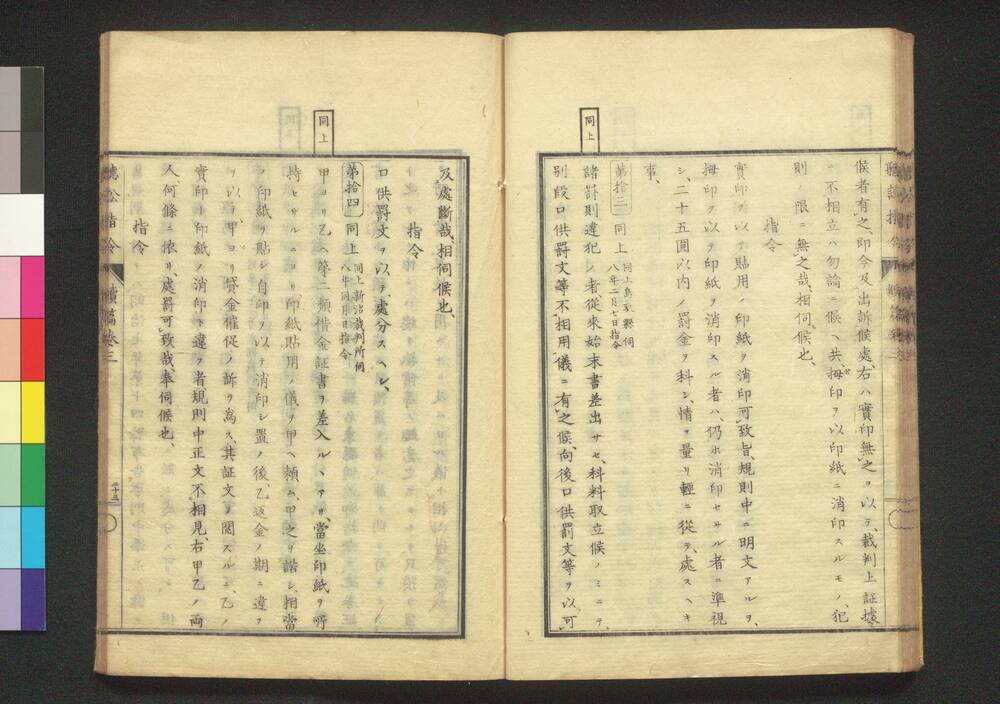 候者有之、即今及出訴候處、右ハ實印無之ヲ以テ、裁判上証據
ニ不相立ハ勿論ニ候ヘ共、拇印ヲ以印紙ニ消印スルモノ、犯
則ノ限ニ無之哉、相伺候也、
指令
實印ヲ以テ貼用ノ印紙ヲ消印可致旨、規則中ニ明文アルヲ、
拇印ヲ以テ印紙ヲ消印スル者ハ、仍ホ消印セサル者ニ準視
シ、二十五圓以内ノ罰金ヲ科シ、情ヲ量リ輕ニ從テ處スヘキ
事、
同上
第拾三 同上 同上鳥取縣伺
八年二月七日指令
諸罰則違犯ノ者從来始末書差出サセ、科料取立候ノミニテ、
別段口供罰文等不相用儀ニ有之候、向後口供罰文等ヲ以、可
及處斷哉、相伺候也、
指令
口供罰文ヲ以テ處分スヘシ、
同上
第拾四 同上 同上新沼裁判所伺
八年同月日指令
甲ヨリ乙ヘ第二類借金証書ヲ差入ルヽアリ、當坐印紙ヲ所
持セサルニヨリ印紙貼用ノ儀ヲ甲ヘ頼ム、甲之ヲ諾シ、相當
ノ印紙ヲ貼シ自印ヲ以テ消印シ置ノ後、乙返金ノ期ニ違フ
ヲ以、甲ヨリ貸金催促ノ訴ヲ為ス、其証文ヲ閲スルニ、乙ノ
實印ト印紙ノ消印ト違フ者、規則中正文不相見、右甲乙ノ両
人何條ニ依リ、處罰可致哉、奉伺候也、
指令
聴訟指令
續編巻三
二十三